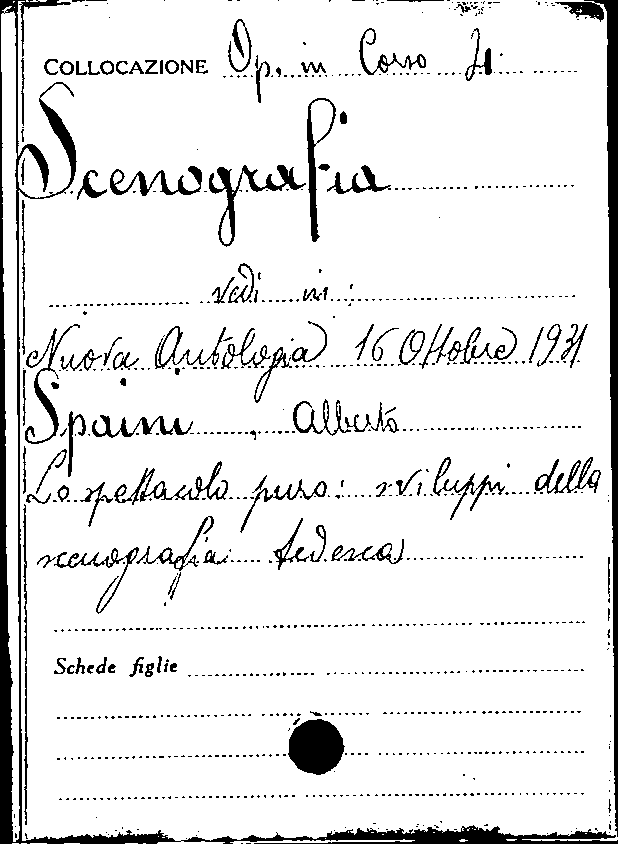 COLLOCAZIONE Op. in Corso 21.
Scenografia
vedi in:
Nuova Antologia 16 Ottobre 1931
Spaini, Alberto
Lo spettacolo puro: sviluppi della
scenografia tedesca
Schede figlie